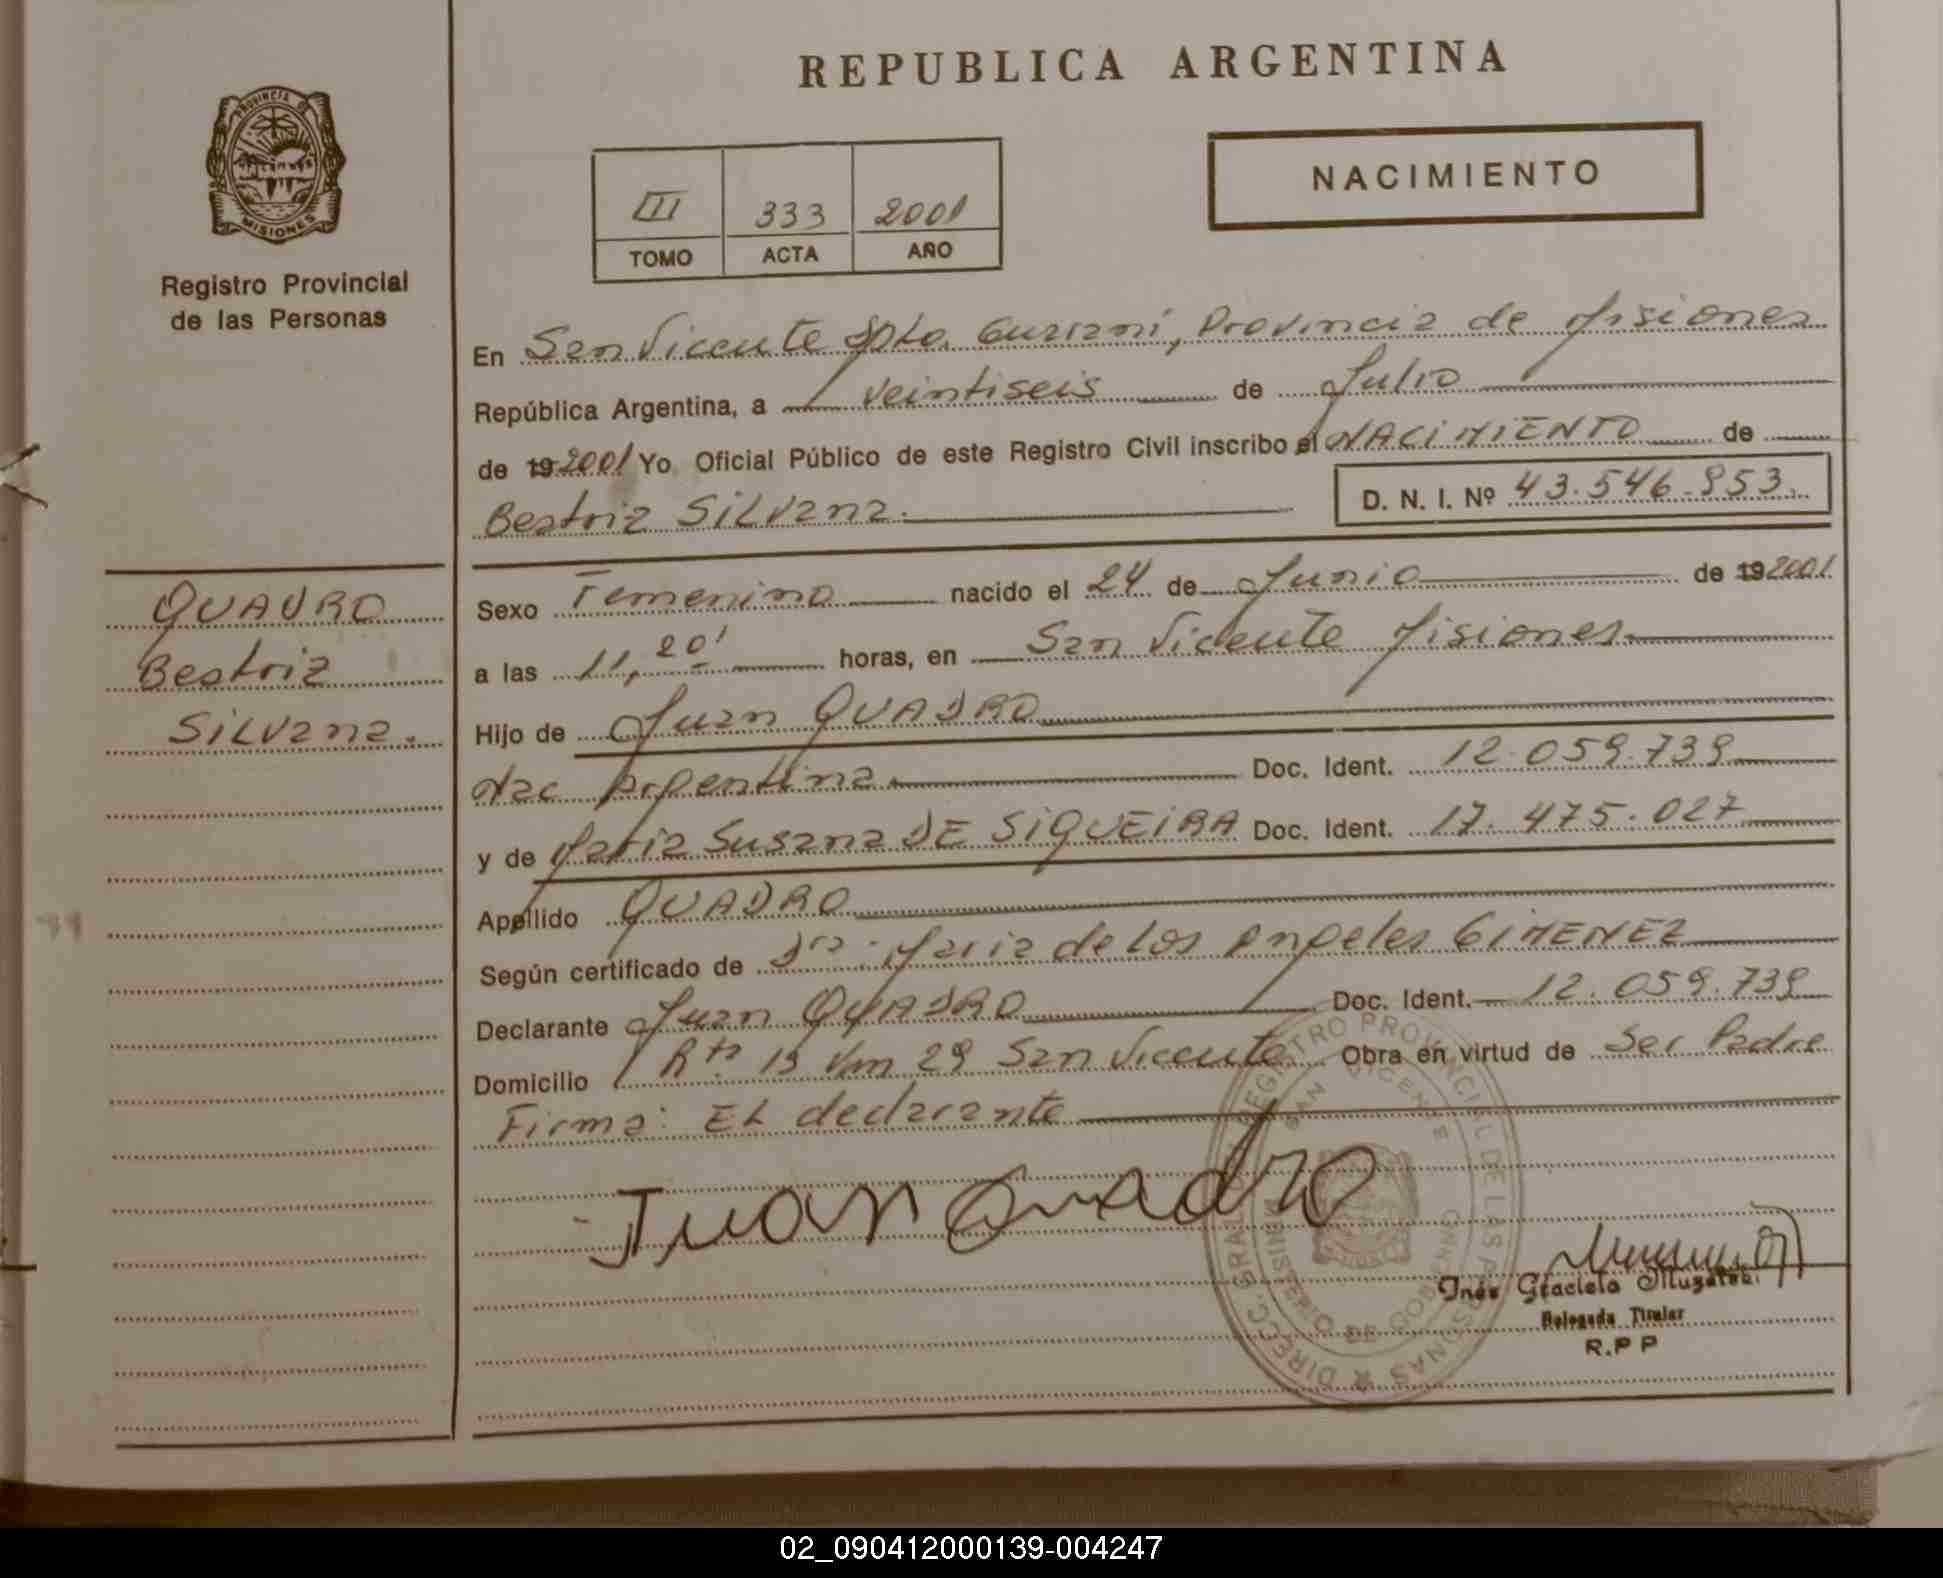 REPUBLICA ARGENTINA
PROVINCIA DE
MISIONES
Registro Provincial
de las Personas
III 333 2001
TOMO ACTA AÑO
NACIMIENTO
En San Vicente Dpto. Guarani, Provincia de Misiones
República Argentina, a veintiseis de Julio
de 19 2001 Yo Oficial Público de este Registro Civil inscribo el NACIMIENTO de
Beatriz Silvana. D. N. I. Nº 43.546.953.
QUADRO
Beatriz
Silvana.
Sexo Femenino nacido el 24 de Junio de 19 2001
a las 11,20' horas, en San Vicente Misiones
Hijo de Juan QUADRO
Nac Argentina. Doc. Ident. 12.059.739
y de Maria Susana DE SIQUEIRA Doc. Ident. 17.475.027
Apellido QUADRO
Según certificado de Dra. Maria de Los Angeles GIMENEZ
Declarante Juan QUADRO Doc. Ident. 12.059.739
Domicilio Rta 13 Km 29 San Vicente Obra en virtud de Ser Padre
Firma: El declarante
Juan Quadro
DIRECC. GRAL. REGISTRO PROVINCIAL DE LAS PERSONAS
SAN VICENTE
MINISTERIO DE GOBIERNO
Inés Graciela
Delegada Titular
R.P P
02_090412000139-004247